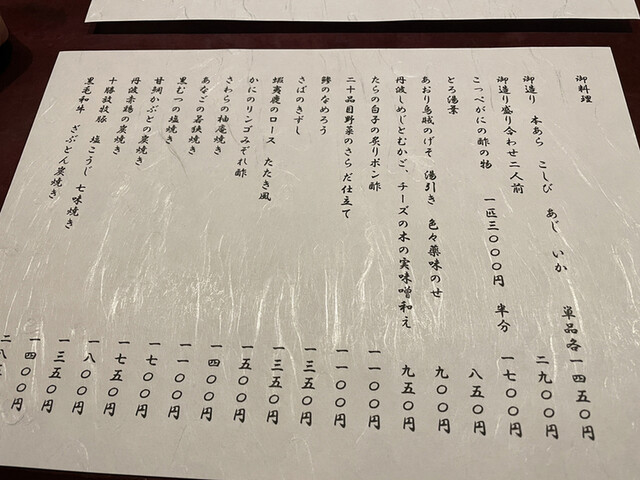 御料理
御造り 本あら こしび あじ いか 単品各一四五〇円
御造り盛り合わせ二人前 二九〇〇円
こっぺがにの酢の物 一匹三〇〇〇円 半分 一七〇〇円
とろ湯葉 八五〇円
あおり烏賊のげそ 湯引き 色々薬味のせ 九〇〇円
丹波しめじとむかご、チーズの木の実味噌和え 九五〇円
たらの白子の炙りポン酢 一一〇〇円
二十品目野菜のさらだ仕立て 一一〇〇円
鯵のなめろう 一三五〇円
さばのきずし 一三五〇円
蝦夷鹿のロース たたき風 一五〇〇円
かにのリンゴみぞれ酢 一四〇〇円
さわらの柚庵焼き 一一〇〇円
あなごの若狭焼き 一七〇〇円
黒むつの塩焼き 一七五〇円
甘鯛かぶとの炭焼き 一八〇〇円
丹波赤鶏の炭焼き 一三五〇円
十勝放牧豚 塩こうじ 七味焼き 一四〇〇円
黒毛和牛 ざぶとん炭焼き 二八